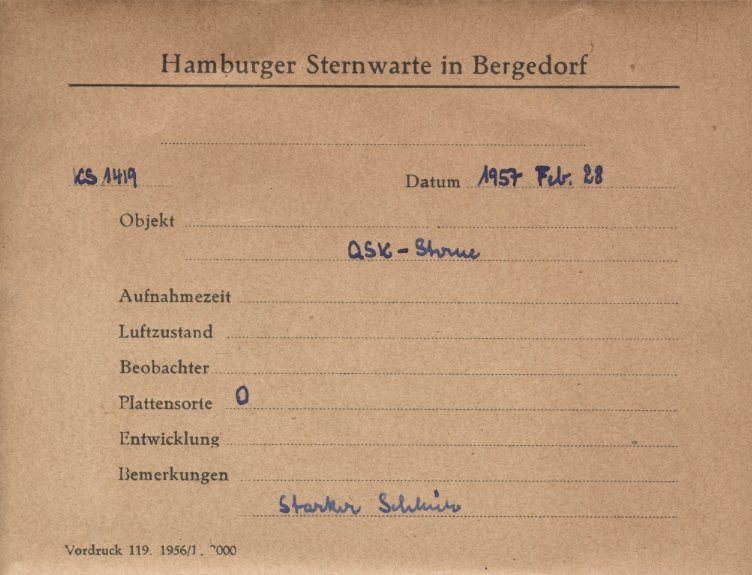 Hamburger Sternwarte in Bergedorf
KS 1419 Datum 1957 Feb. 28
Objekt
QSK - Sterne
Aufnahmezeit
Luftzustand
Beobachter
Plattensorte O
Entwicklung
Bemerkungen
Starker
Vordruck 119. 1956/1.